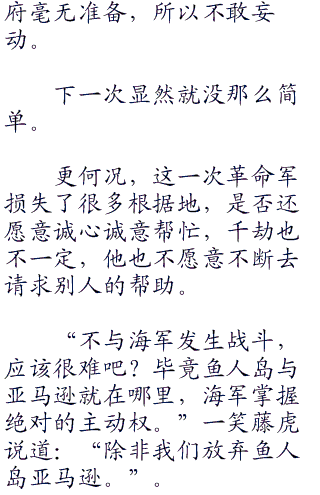 府毫无准备，所以不敢妄
动。
下一次显然就没那么简
单。
更何况，这一次革命军
损失了很多根据地，是否还
愿意诚心诚意帮忙，千劫也
不一定，他也不愿意不断去
请求别人的帮助。
“不与海军发生战斗，
应该很难吧？毕竟鱼人岛与
亚马逊就在哪里，海军掌握
绝对的主动权。”一笑藤虎
说道：“除非我们放弃鱼人
岛亚马逊。”。